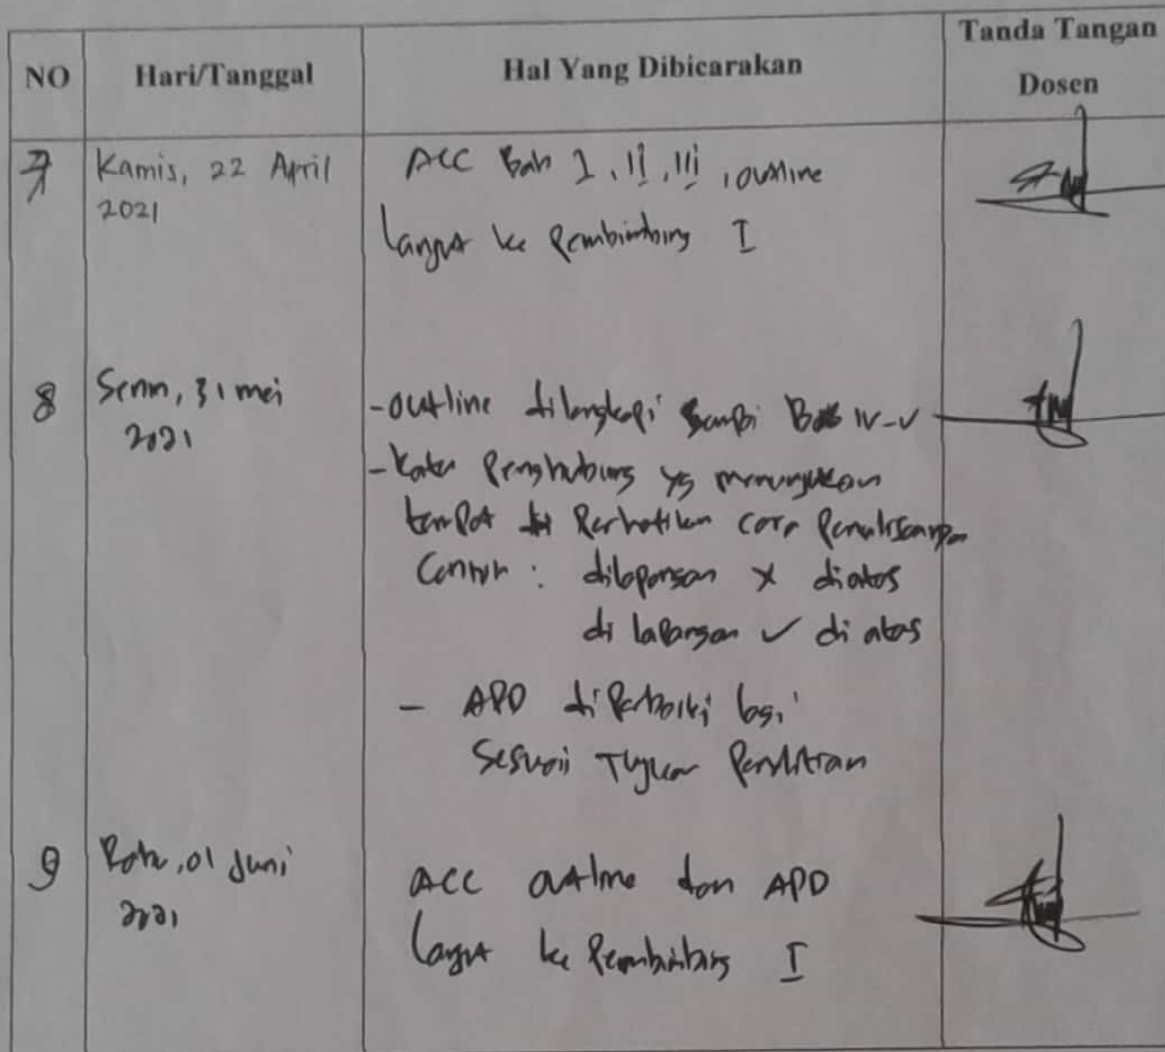 NO Hari/Tanggal Hal Yang Dibicarakan Tanda Tangan Dosen
7 Kamis, 22 April 2021
ACC Bab I, II, III, outline
lanjut ke Pembimbing I
8 Senin, 31 mei 2021
- outline dilengkapi sampai Bab IV-V
- Kata Penghubung yg menunjukan
tempat Perhatikan cara Penulisannya
Contoh : dilapangan x diatas
di lapangan ✓ di atas
- APD diPerbaiki lagi
Sesuai Tujuan Penelitian
9 Rabu, 01 Juni 2021
ACC outline dan APD
lanjut ke Pembimbing I